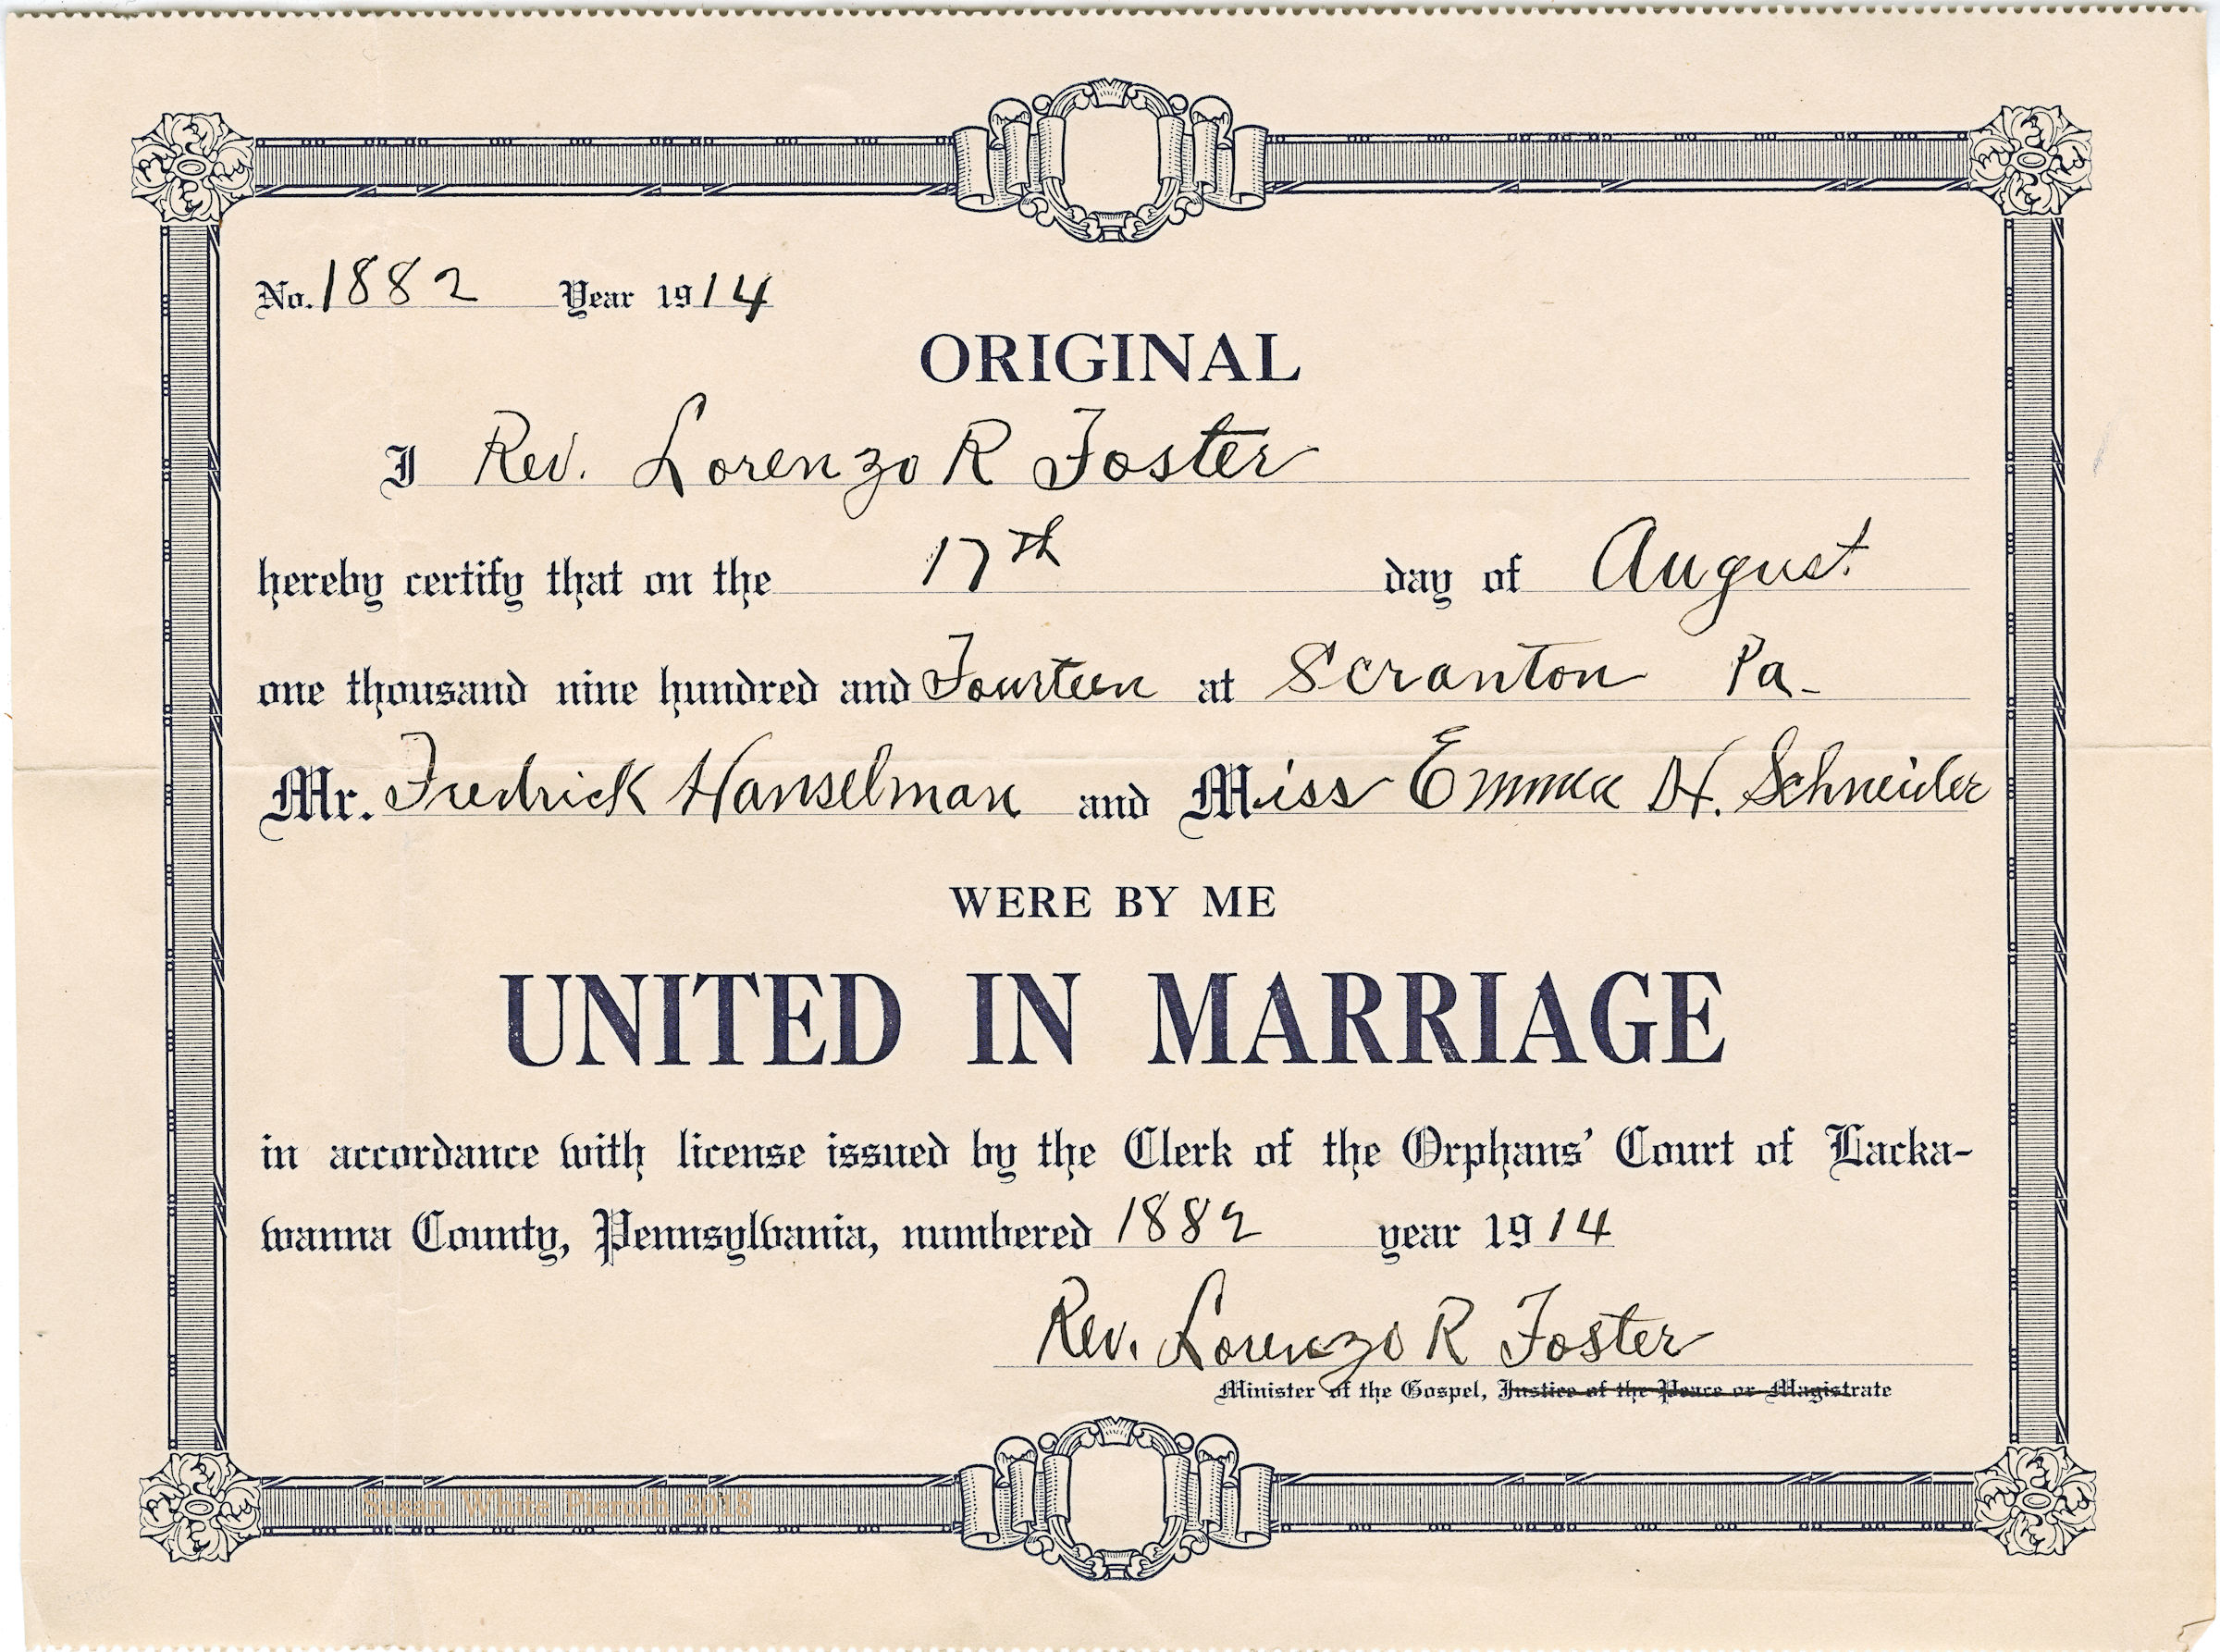 No. 1882 Year 1914
ORIGINAL
I Rev. Lorenzo R Foster
hereby certify that on the 17th day of August
one thousand nine hundred and Fourteen at Scranton Pa.
Mr. Fredrick Hanselman and Miss Emma H. Schneider
WERE BY ME
UNITED IN MARRIAGE
in accordance with license issued by the Clerk of the Orphans' Court of Lacka-
wanna County, Pennsylvania, numbered 1882 year 1914
Rev. Lorenzo R Foster
Minister of the Gospel, Justice of the Peace or Magistrate
Susan White Pieroth 2018